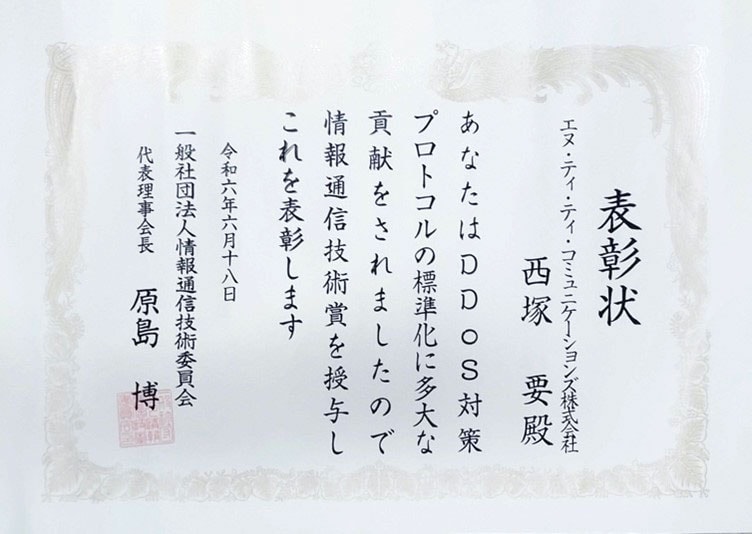 表彰状
エヌ・ティ・ティ・コミュニケーションズ株式会社
西塚 要殿
あなたはDDoS対策
プロトコルの標準化に多大な
貢献をされましたので
情報通信技術賞を授与し
これを表彰します
令和六年六月十八日
一般社団法人情報通信技術委員会
代表理事会長 原島 博